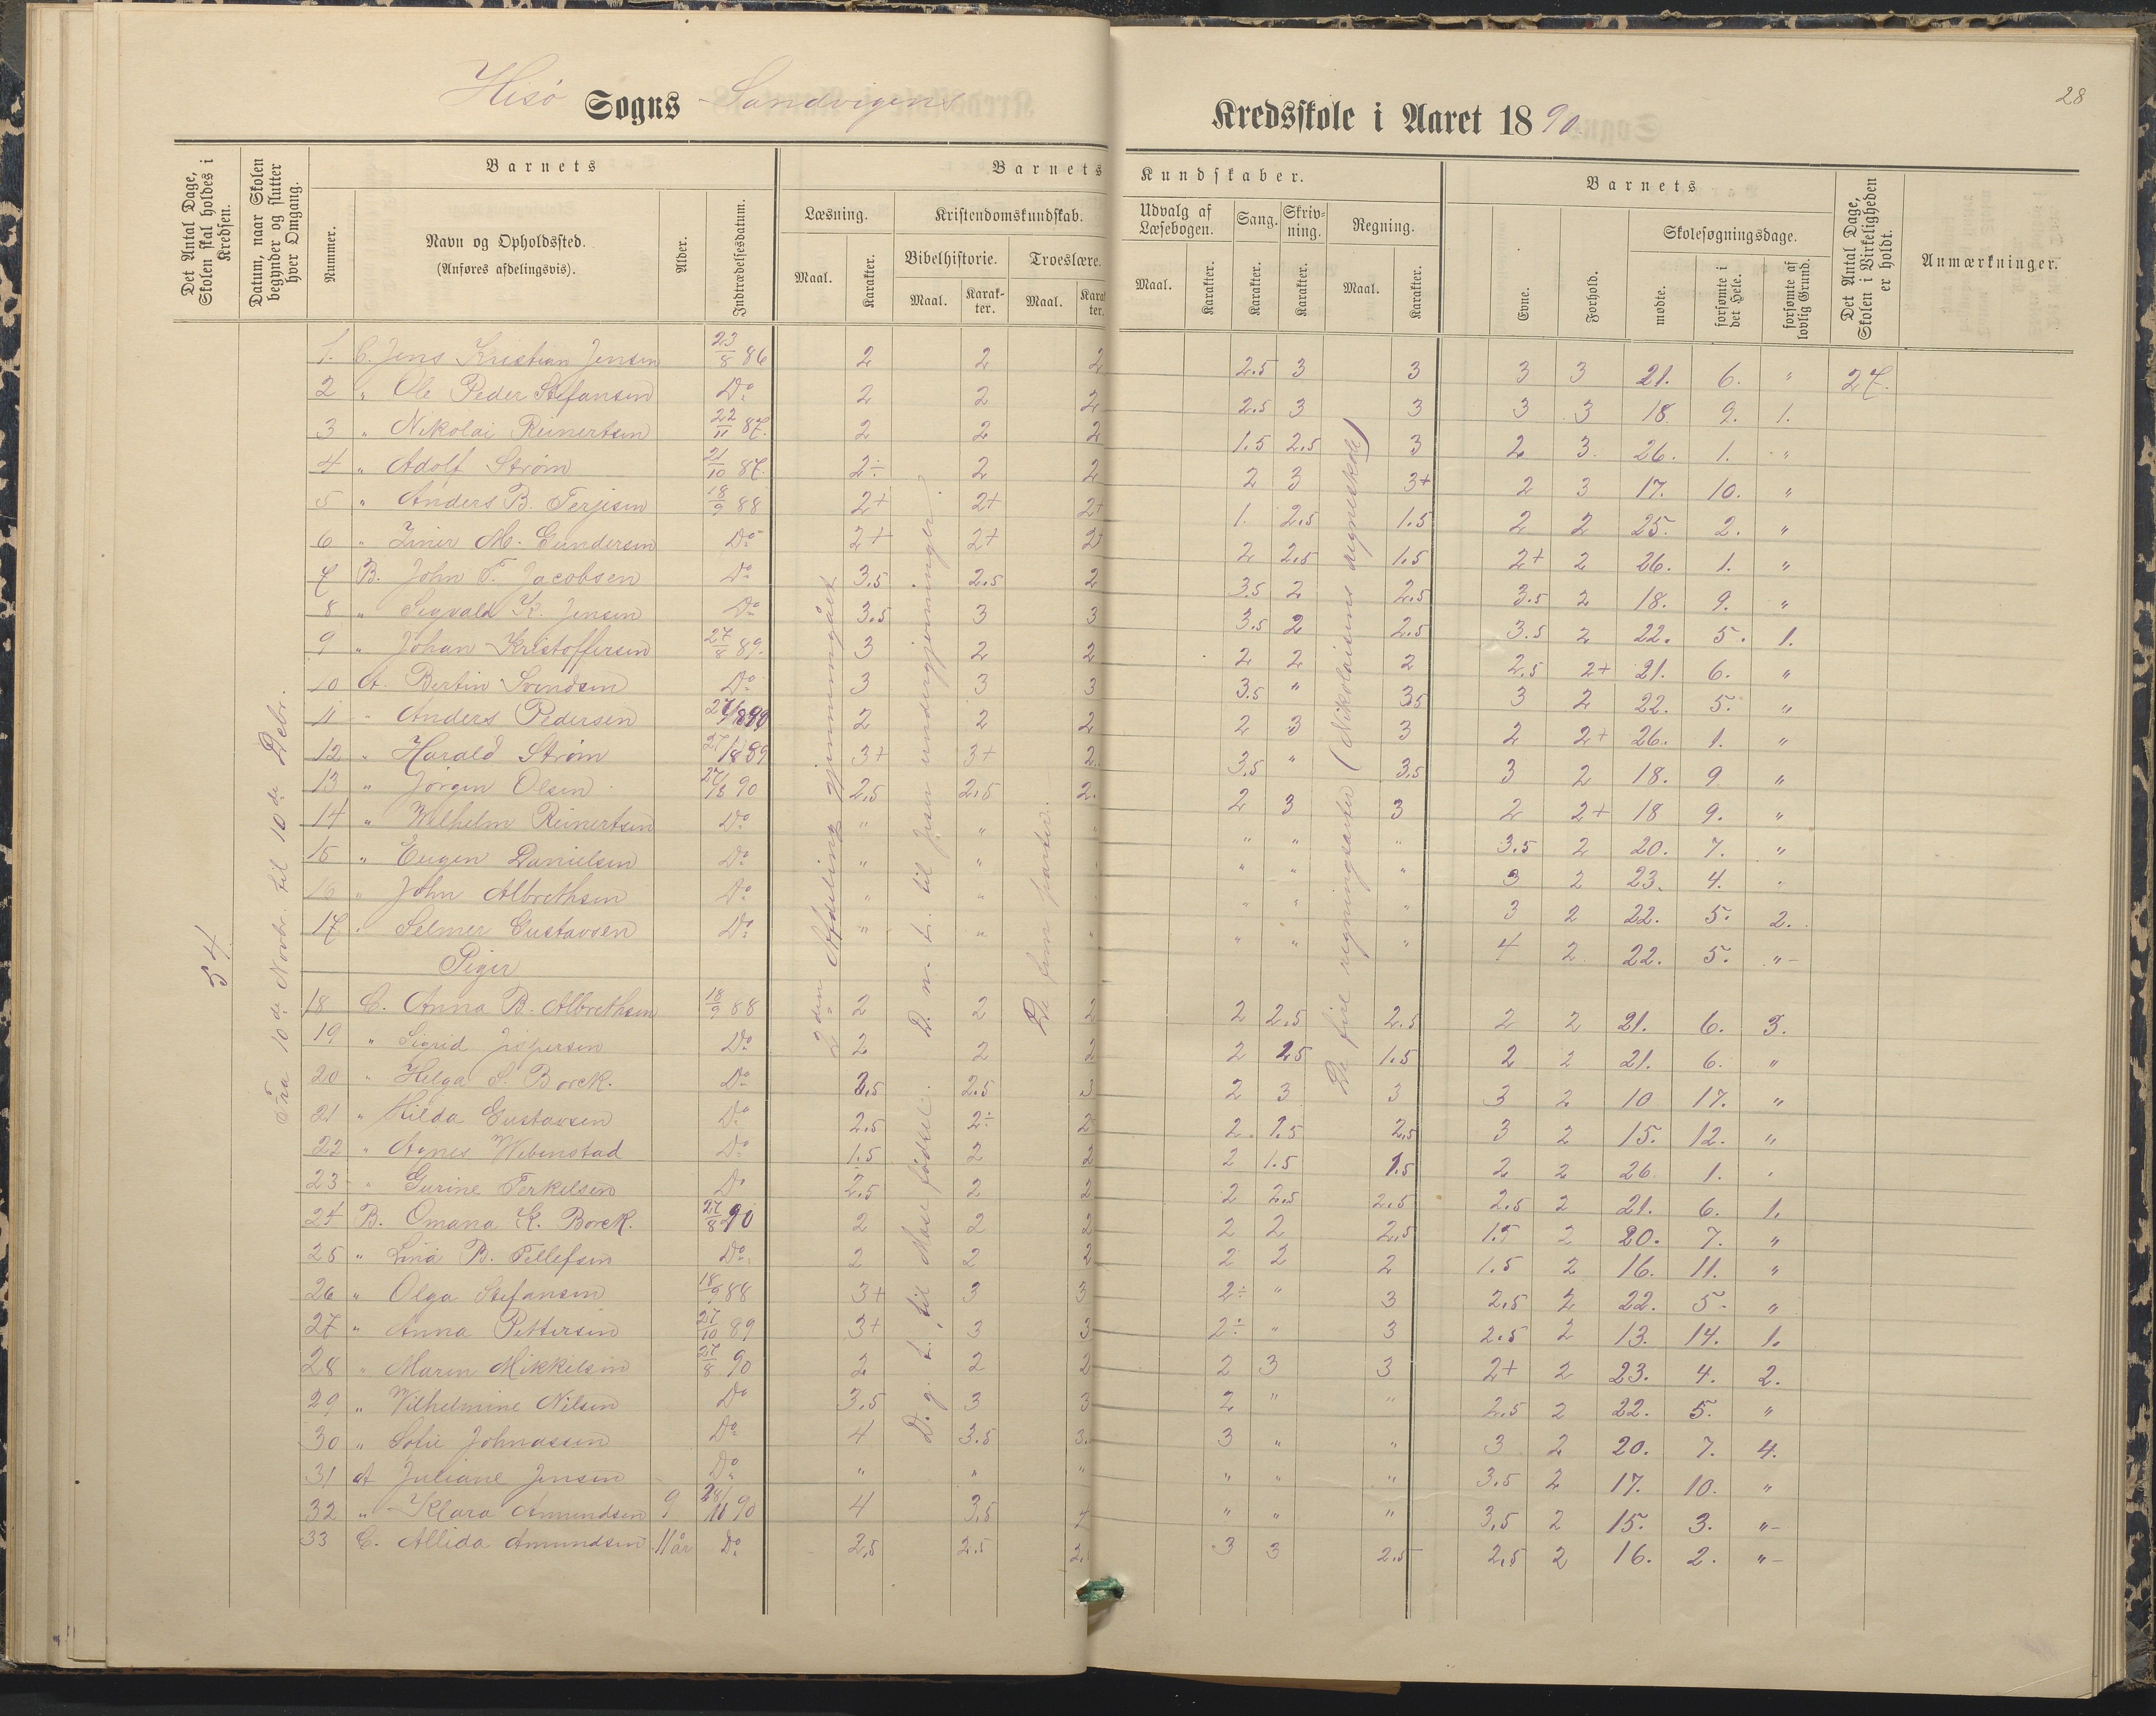 28
Hisø Sogns Sandvigens Kredsskole i Aaret 1890
Det Antal Dage, Skolen skal holdes i Kredsen.
Datum, naar Skolen begynder og slutter hver Omgang.
Barnets
Nummer.
Navn og Opholdssted.
(Anføres afdelingsvis).
Alder.
Indtrædelsesdatum.
Barnets Kundskaber.
Læsning. Kristendomskundskab. Udvalg af Læsebogen. Sang. Skrivning. Regning.
Bibelhistorie. Troeslære.
Maal. Karakter. Maal. Karakter. Maal. Karakter. Maal. Karakter. Karakter. Karakter. Maal. Karakter.
Barnets
Evne. Forhold. Skolesøgningsdage.
mødte. forsømte i det Hele. forsømte af lovlig Grund.
Det Antal Dage, Skolen i Virkeligheden er holdt.
Anmærkninger.
54
Fra 10de Novbr. til 10de Debr.
2den Afdeling gjennemgået
D. g. t. til Mose fødsel. D. n. t. til Jesu undergjerninger.
De fem parter.
De fire regningsarter (Nikolaisens regneskole)
1. C. Jens Kristian Jensen 23/8 86 2 2 2 2.5 3 3 3 3 21. 6. " 27.
2 " Ole Peder Stefansen Do 2 2 2 2.5 3 3 3 3 18 9. 1.
3 " Nikolai Reinertsen 22/11 87. 2 2 2 1.5 2.5 3 2 3. 26. 1. "
4 " Adolf Strøm 21/10 87. 2÷ 2 2 2 3 3+ 2 3 17. 10. "
5 " Anders B. Terjesen 18/9 88 2+ 2+ 2+ 1. 2.5 1.5 2 2 25. 2. "
6 " Einer M. Gundersen Do 2+ 2+ 2+ 2 2.5 1.5 2+ 2 26. 1. "
7 B. John T. Jacobsen Do 3.5 2.5 2 3.5 2 2.5 3.5 2 18. 9. "
8 " Sigvald K. Jensen Do 3.5 3 3 3.5 2 2.5 3.5 2 22. 5. 1.
9 " Johan Kristoffersen 27/8 89. 3 2 2 2 2 2 2.5 2+ 21. 6. "
10 A. Bertin Svendsen Do 3 3 3 3.5 " 3.5 3 2 22. 5. "
11 " Anders Pedersen 27/8 90 2 2 2 2 3 3 2 2+ 26. 1. "
12 " Harald Strøm 27/8 89 3+ 3+ 2. 3.5 " 3.5 3 2 18. 9 "
13 " Jørgen Olsen 27/8 90 2.5 2.5 2. 2 3 3 2 2+ 18 9. "
14 " Wilhelm Reinertsen Do " " " " " " 3.5 2 20. 7. "
15 " Eugen Danielsen Do " " " " " 3 2 23. 4. "
16 " John Albrethsen Do " " " " " 3 2 22. 5. 2.
17 " Selmer Gustavsen Do " " " " " " 4 2 22. 5. "
Piger
18 C. Anna B. Albrethsen 18/9 88 2 2 2 2 2.5 2.5 2 2 21. 6. 3.
19 " Sigrid Jispersen Do 2 2 2 2 2.5 1.5 2 2 21. 6. "
20 " Helga S. Borck. Do 2.5 2.5 3 2 3 3 3 2 10 17. "
21 " Hilda Gustavsen Do 2.5 2÷ 2 2. 1.5 2.5 3 2 15. 12. "
22 " Agnes Webenstad Do 1.5 2 2 2 1.5 1.5 2 2 26 1. "
23 " Gurine Terkelsen Do 2.5 2 2 2 2.5 2.5 2.5 2 21. 6. 1.
24 B. Omana K. Borck. 27/8 90 2 2 2 2 2 2.5 1.5 2 20. 7. "
25 " Lina B. Tellefsen Do 2 2 2 2 2 2 1.5 2 16. 11. "
26 " Olga Stefansen 18/9 88 3+ 3 3 2÷ " 3 2.5 2 22. 5. "
27 " Anna Pettersen 27/10 89 3+ 3 3 2÷ " 3 2.5 2 13. 14. 1.
28 " Maren Mikkelsen 27/8 90 2 2 2 2 3 3 2+ 2 23. 4. 2.
29 " Vilhelmine Nilsen Do 3.5 3 3 2 " " 2.5 2 22. 5. "
30 " Sofie Johnassen Do 4 3.5 3. 3 " " 3 2 20. 7. 4.
31 A Juliane Jensen Do " " " " " " 3.5 2 17. 10. "
32 " Klara Amundsen 9 28/10 90 4 3.5 " " " 3.5 2 15. 3. "
33 C. Allida Amundsen 11 år Do 2.5 2.5 3 3 2.5 2.5 2 16. 2. "